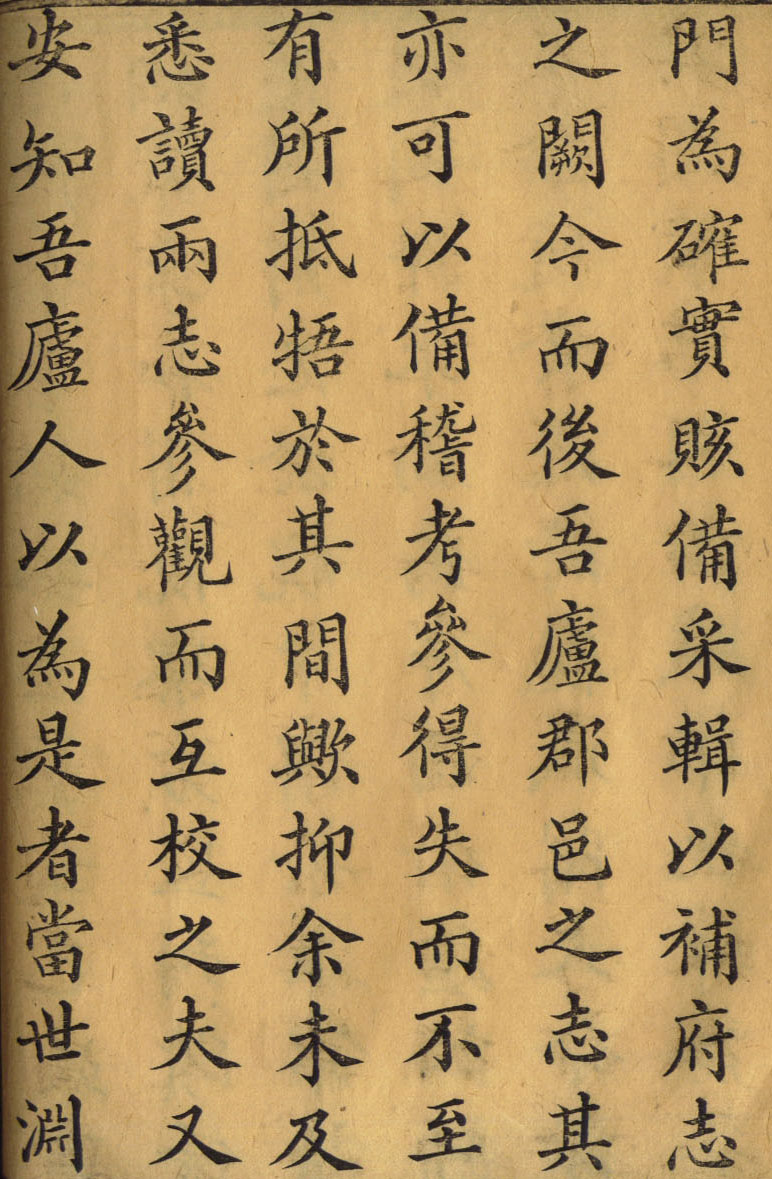 門為確實賅備采輯以補府志
之闕今而後吾廬郡邑之志其
亦可以備稽考參得失而不至
有所抵牾於其間歟抑余未及
悉讀兩志參觀而互校之夫又
安知吾廬人以為是者當世淵